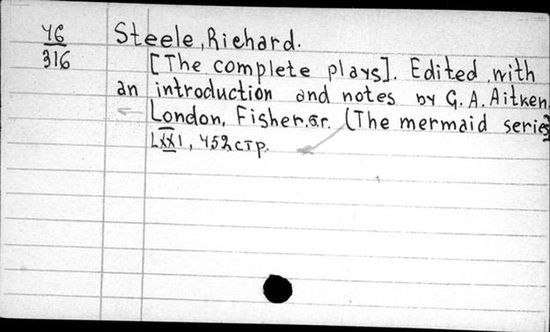 46
316
Steele, Richard.
[The complete plays]. Edited with
an introduction and notes by G. A. Aitken.
London, Fisher. Gr. (The mermaid series)
LXXI, 452 стр.